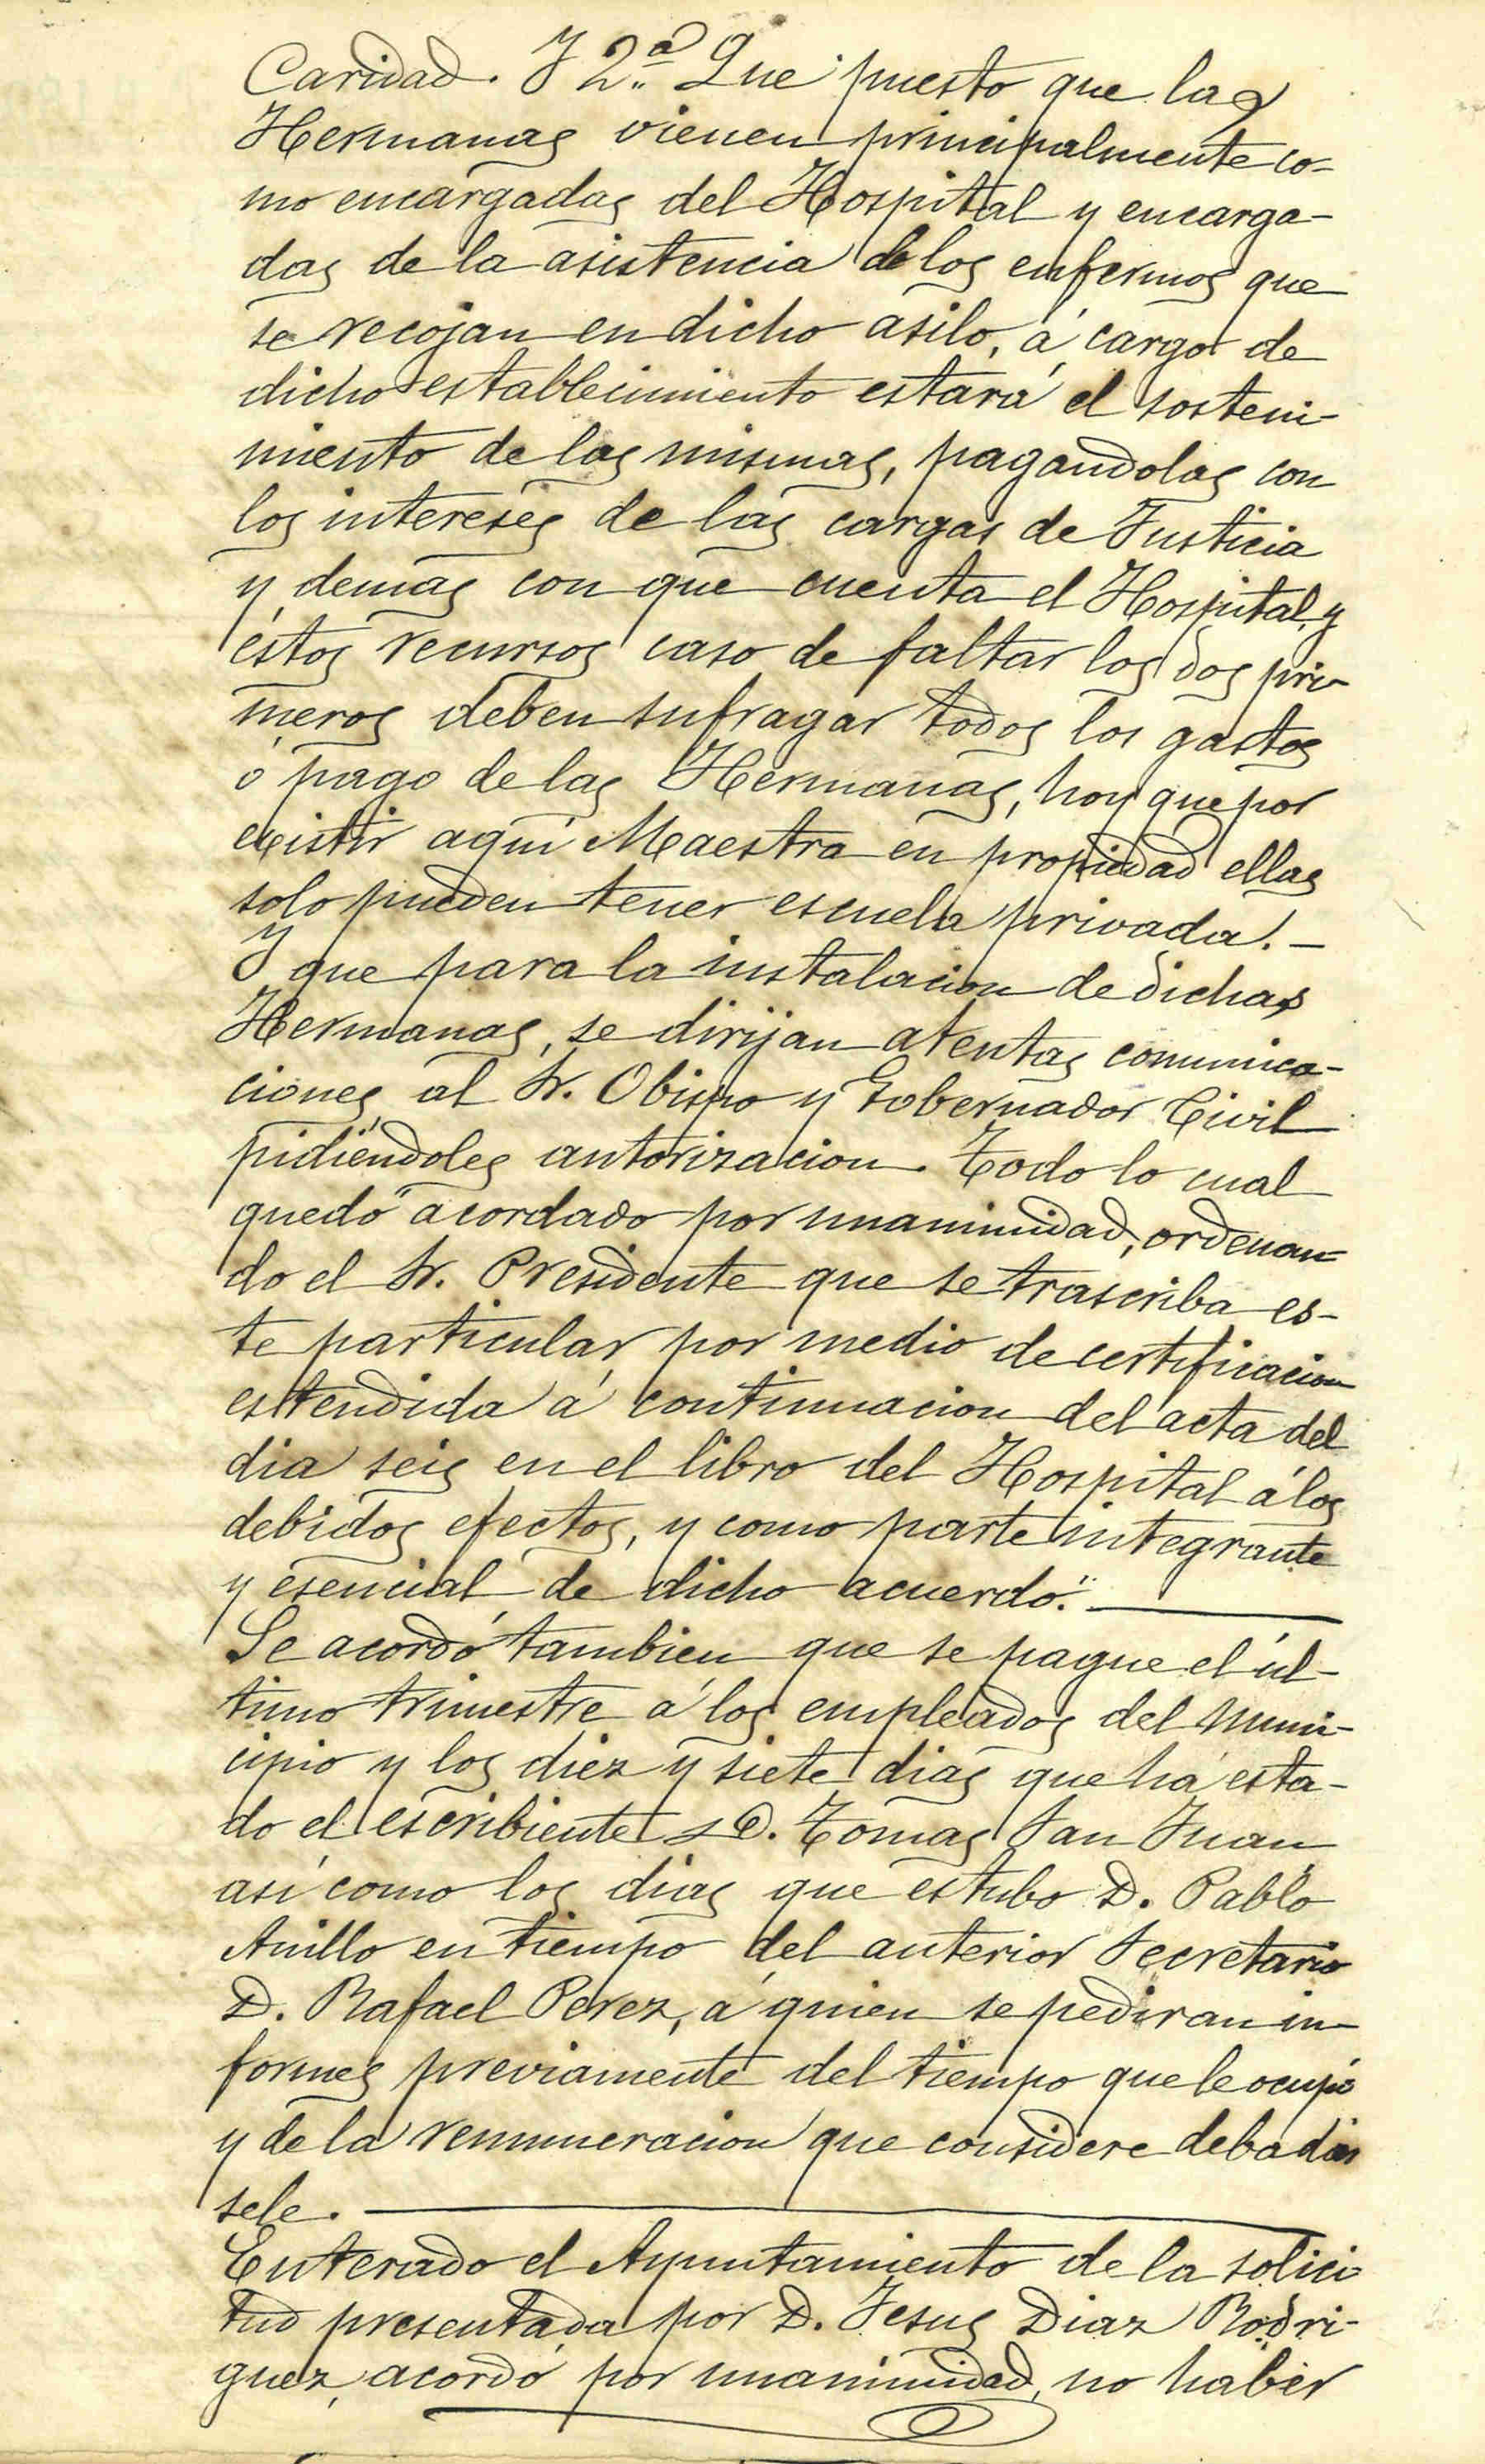 Caridad. Y 2.ª Que puesto que las
Hermanas vienen principalmente co-
mo encargadas del Hospital y encarga-
das de la asistencia de los enfermos que
se recojan en dicho asilo, á cargo de
dicho establecimiento estará el sosteni-
miento de las mismas, pagandolas con
los intereses de las cargas de Justicia
y demás con que cuenta el Hospital, y
éstos recursos caso de faltar los dos pri-
meros deben sufragar todos los gastos
ó pago de las Hermanas, hoy que por
existir aquí Maestra en propiedad ellas
solo pueden tener escuela privada. -
Y que para la instalacion de dichas
Hermanas, se dirijan atentas comunica-
ciones al Sr. Obispo y Gobernador Civil
pidiéndoles autorizacion. Todo lo cual
quedó acordado por unanimidad, ordenan-
do el Sr. Presidente que se trascriba es-
te particular por medio de certificacion
estendida á continuacion del acta del
dia seis en el libro del Hospital á los
debidos efectos, y como parte integrante
y esencial de dicho acuerdo."
Se acordó tambien que se pague el úl-
timo trimestre á los empleados del muni-
cipio y los diez y siete dias que há esta-
do el escribiente D. Tomas San Juan
así como los dias que estubo D. Pablo
Anillo en tiempo del anterior Secretario
D. Rafael Perez, á quien se pediran in-
formes previamente del tiempo que le ocupó
y de la remuneracion que considere deba dár
sele.
Enterado el Ayuntamiento de la solici-
tud presentada por D. Jesus Diaz Rodri-
guez, acordó por unanimidad, no haber